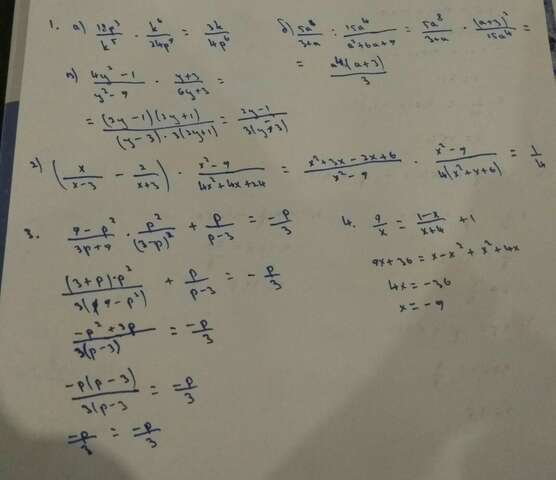 1. а) 18p³/k⁵ · k⁶/24p⁹ = 3k/4p⁶
б) 5a⁸/3+a : 15a⁴/a²+6a+9 = 5a⁸/3+a · (a+3)²/15a⁴ =
= a⁴(a+3)/3
в) 4y²-1/y²-9 · y+3/6y+3 =
= (2y-1)(2y+1)/(y-3)·3(2y+1) = 2y-1/3(y-3)
2) (x/x-3 - 2/x+3) · x²-9/4x²+4x+24 = x²+3x-2x+6/x²-9 · x²-9/4(x²+x+6) = 1/4
3. 9-p²/3p+9 · p²/(3-p)² + p/p-3 = -p/3
(3+p)·p²/3(9-p²) + p/p-3 = -p/3
-p²+3p/3(p-3) = -p/3
-p(p-3)/3(p-3 = -p/3
-p/3 = -p/3
4. 9/x = 1-x/x+4 + 1
9x+36 = x-x²+x²+4x
4x = -36
x = -9